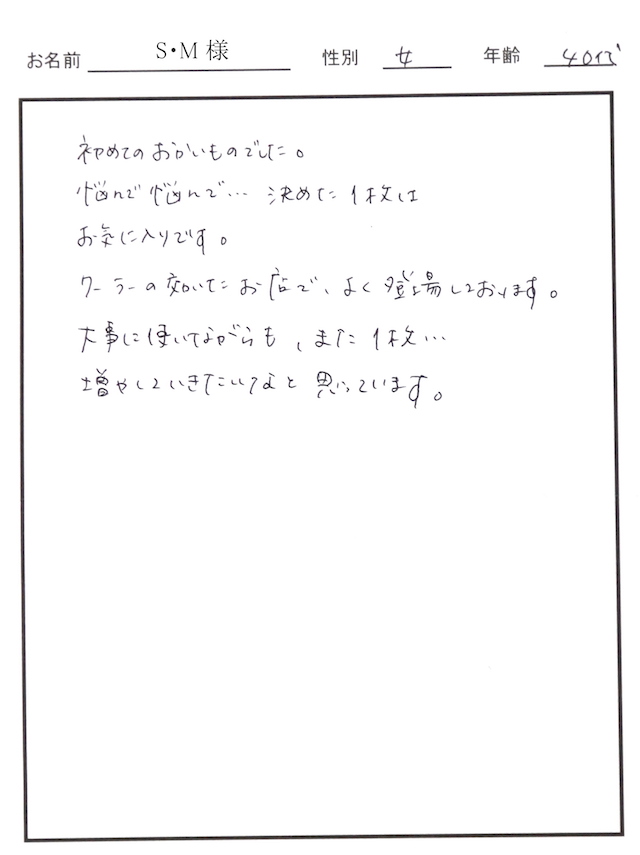 お名前 S・M 様 性別 女 年齢 40代
初めてのおかいものでした。
悩んで悩んで… 決めた1枚は
お気に入りです。
クーラーの効いたお店で、よく登場しております。
大事に使いながらも、また1枚…
増やしていきたいなと思っています。